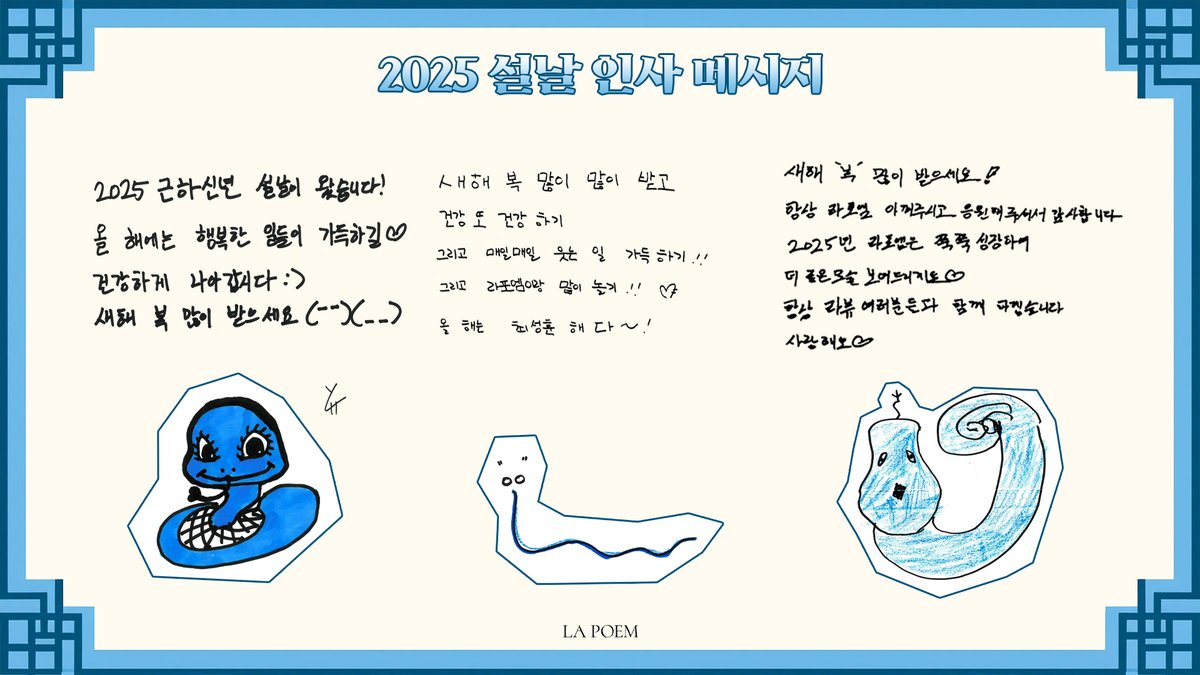 2025 설날 인사 메시지
2025 근하신년 설날이 왔습니다!
올 해에는 행복한 일들이 가득하길♡
건강하게 나아갑시다 :)
새해 복 많이 받으세요 (--)(__)
새해 복 많이 많이 받고
건강 또 건강 하기
그리고 매일매일 웃는 일 가득하기!!
그리고 라포엠이랑 많이 놀기!! ♡
올 해는 최성훈 해 다~!
새해 "복" 많이 받으세요!
항상 라포엠 아껴주시고 응원해주셔서 감사합니다
2025년 라포엠은 쭉쭉 성장하여
더 좋은모습 보여드리겠도♡
항상 라뷰 여러분들과 함께 하겠습니다
사랑해요♡
YH
LA POEM